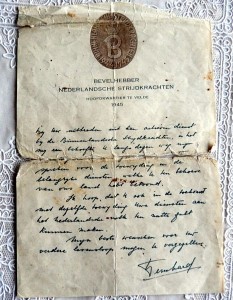 B
BEVELHEBBER
NEDERLANDSCHE STRIJDKRACHTEN
HOOFDKWARTIER TE VELDE
1945
Bij het uittreden uit den actieven dienst
bij de Binnenlandsche Strijdkrachten, is het
mij een behoefte U langs dezen weg mijn
spreken voor de
belangrijke diensten welke U ten behoeve
van ons land hebt betoond.
Ik hoop, dat U ook in de toekomst
met dezelfde toewijding Uwe diensten aan
het Nederlandsche volk ten nutte zult
kunnen maken.
Mijn beste wenschen voor uw
verdere levensloop mogen U vergezellen.
Bernhard